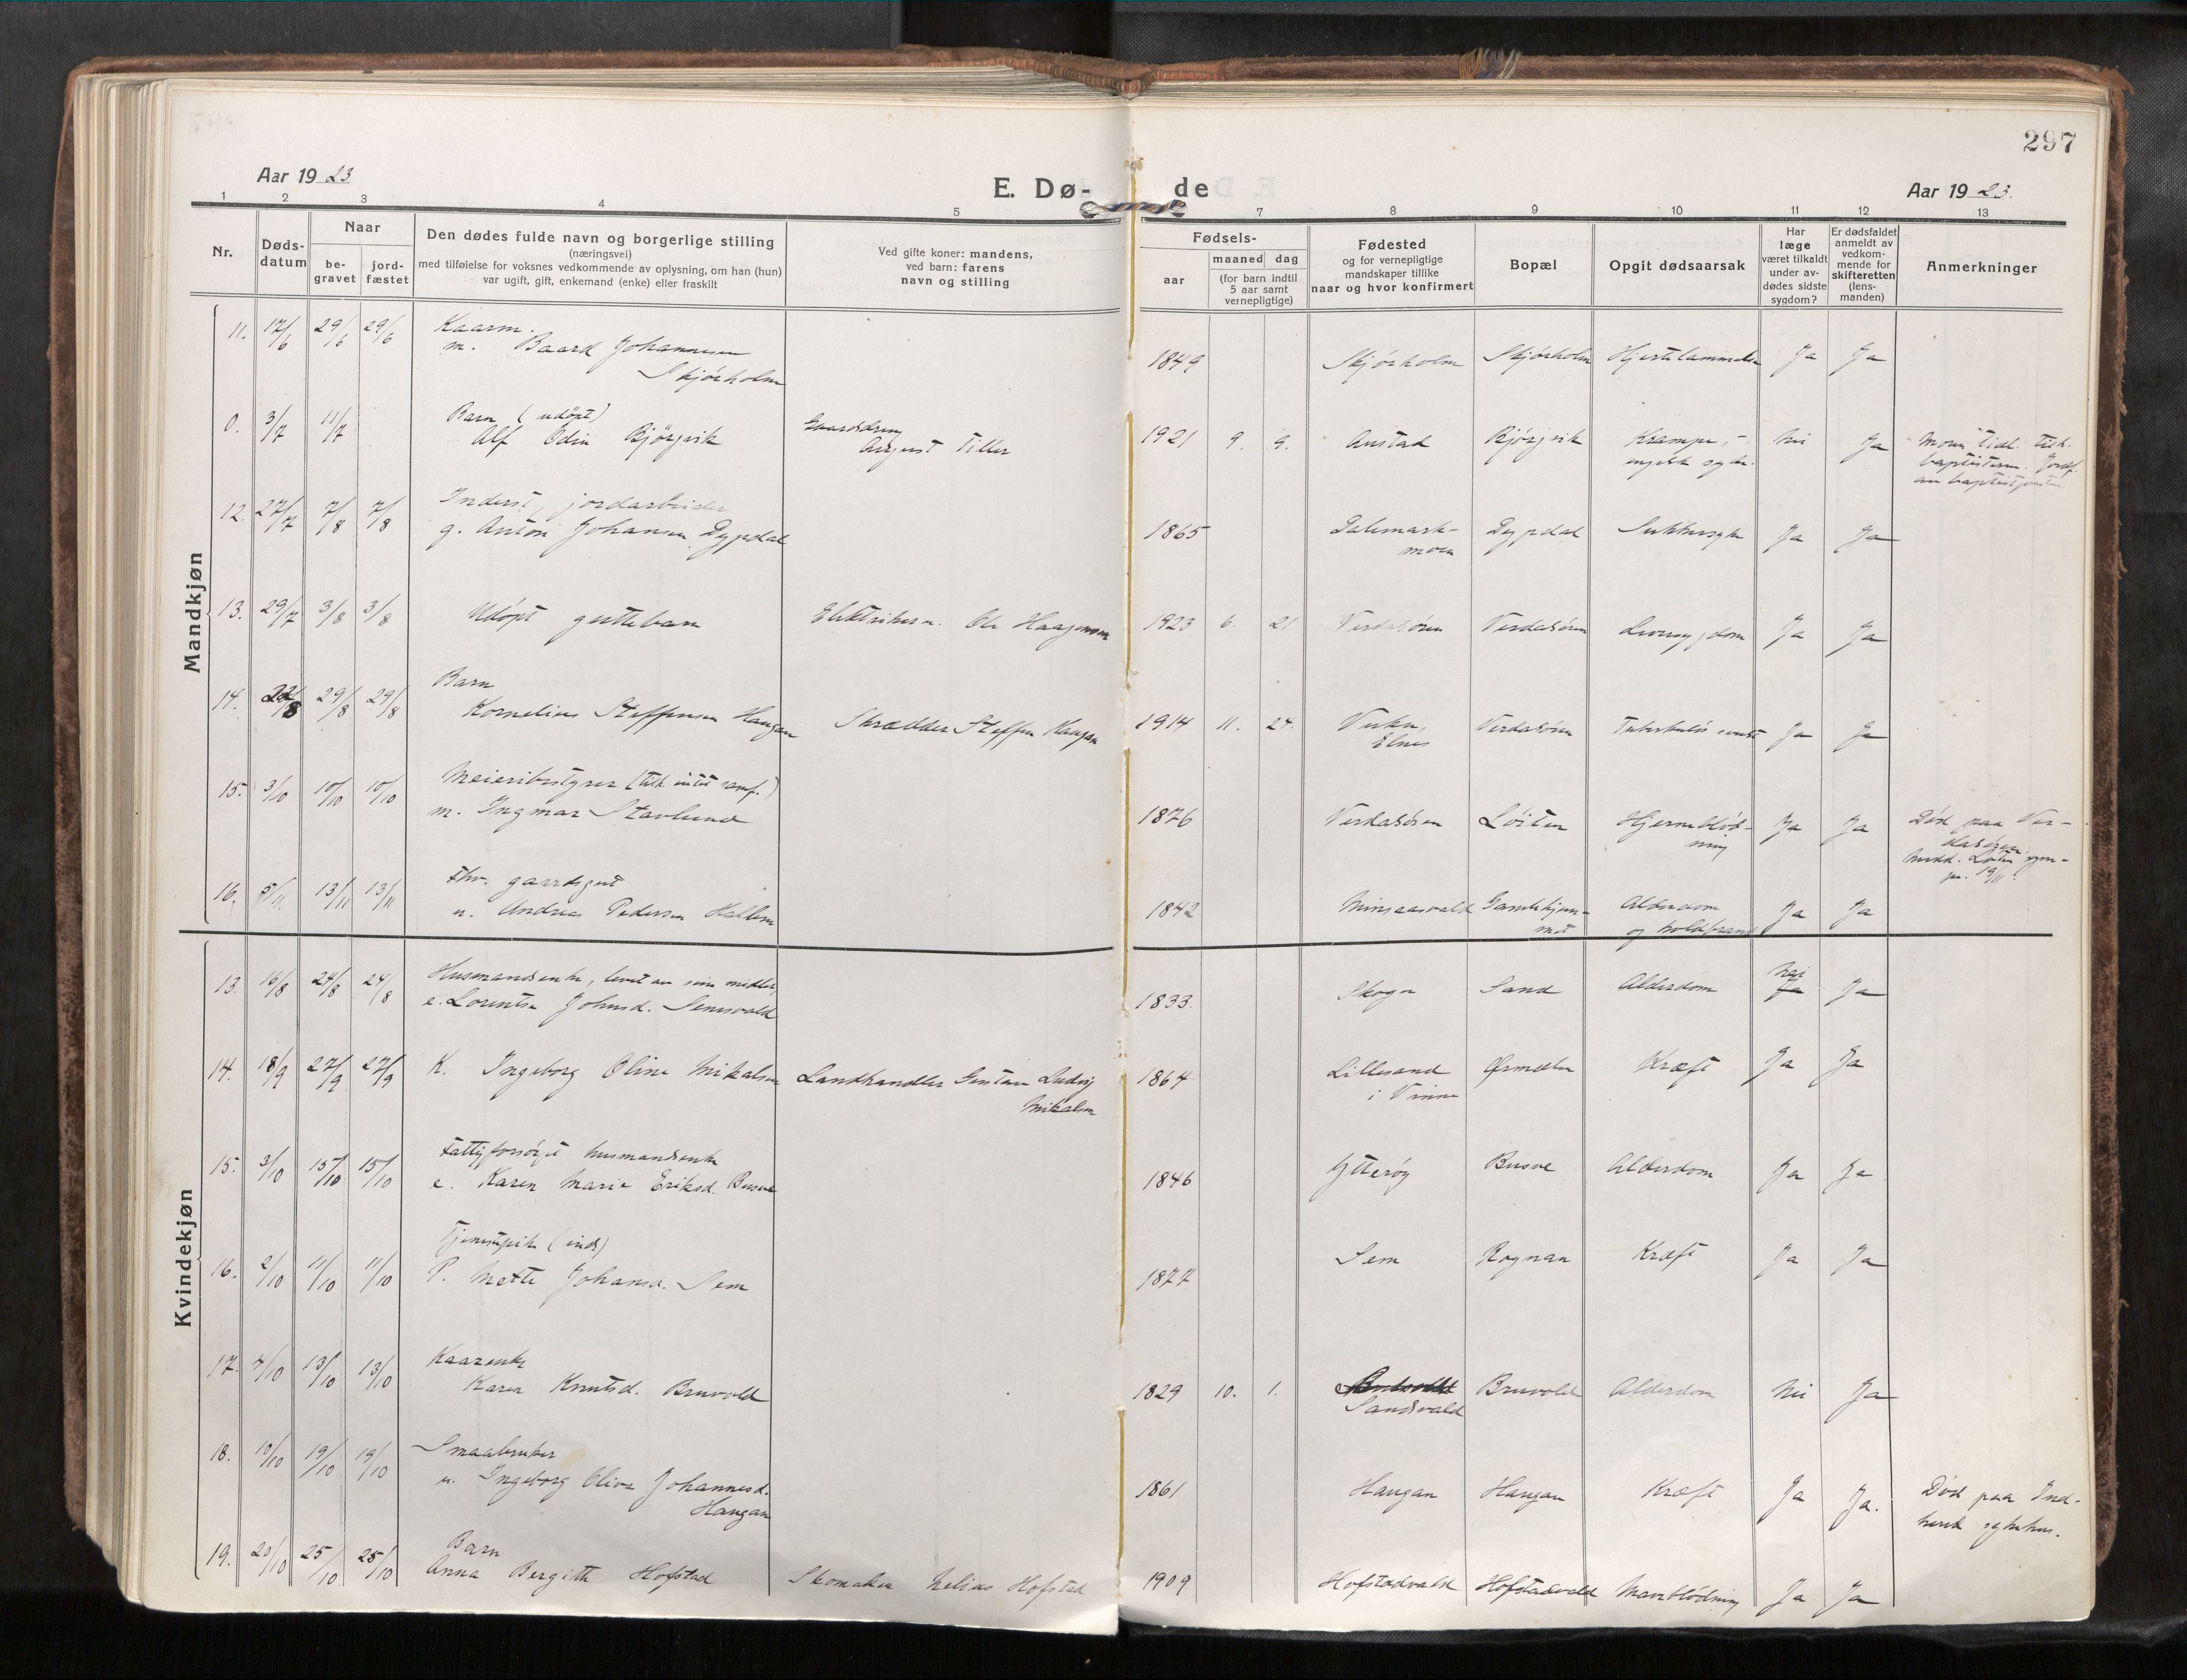 297
Aar 1923
E. Dø-de
Aar 1923.
1 2 3 4 5 7 8 9 10 11 12 13
Nr.
Døds-datum
Naar
be-gravet
jord-fæstet
Den dødes fulde navn og borgerlige stilling
(næringsvei)
med tilføielse for voksnes vedkommende av oplysning, om han (hun)
var ugift, gift, enkemand (enke) eller fraskilt
Ved gifte koner: mandens,
ved barn: farens
navn og stilling
Fødsels-
aar
maaned dag
(for barn indtil
5 aar samt
vernepligtige)
Fødested
og for vernepligtige
mandskaper tillike
naar og hvor konfirmert
Bopæl
Opgit dødsaarsak
Har
læge
været tilkaldt
under av-
dødes sidste
sygdom?
Er dødsfaldet
anmeldt av
vedkom-
mende for
skifteretten
(lens-
manden)
Anmerkninger
Mandkjøn
11. 17/6 29/6 29/6 Kaarm.
m. Baard Johannesen
Skjørholm
1849 Skjørholm Skjørholm Hjertelammelse Ja Ja
0. 3/7 11/7 Barn (udøpt)
Alf Odin Bjørgvik
August Tiller
1921 9. 9. Austad Bjørgvik Krampe,-
engelsk syke. Nei Ja
12. 27/7 7/8 7/8 Inderst, jordarbeider
g. Anton Johansen Dypdal
1865 Dalemark-
moen Dypdal Sukkersyke Ja Ja
13. 29/7 3/8 3/8 Udöpt guttebarn Elektriker Ole Haagensen 1923 6. 21 Verdalsören Verdalsören Leversygdom Ja Ja
14. 22/8 29/8 29/8 Barn
Kornelius Steffensen Haugan Skrædder Steffen Haugan 1914 11. 24. Vuku,
Elnes Verdalsören Ja Ja
15. 3/10 10/10 10/10 Meieribestyrer
m. Ingmar Stavlund
1876 Verdalsören Löiten Hjerneblöd-
ning Ja Ja Död paa Ver-
dalsören.
16. 5/11 13/11 13/11 Fhv. gaardsgut
u. Andreas Pedersen Hallem
1842 Minsaasvald Gamlehjem-
met Alderdom
og koldbrand Ja Ja
Kvindekjøn
13. 16/8 24/8 24/8 Husmandsenke, levet av sine midler,
e. Lorentse Johnsd. Semsvald
1833. Skogn Sand Alderdom Nei Ja Ja
14. 18/9 27/9 27/9 K. Ingeborg Oline Mikalsen Landhandler Gustav Ludvig
Mikalsen
1864 Lillesand
i Vinne Ørmelen Kræft Ja Ja
15. 3/10 15/10 15/10 Fattigforsörget husmandsenke
e. Karen Marie Eriksd. Busve
1846 Ytteröy Busve Alderdom Ja Ja
16. 2/10 11/10 11/10 Tjenestepike (inds)
P. Mette Johansd. Sem
1877 Sem Rognan Kræft Ja Ja
17. 4/10 13/10 13/10 Kaarenke
Karen Knutsd. Bruvold
1829 10. 1. Sandsvald Bruvold Alderdom Nei Ja
18. 10/10 19/10 19/10 Smaabruker
u. Ingeborg Olive Johannesd.
Haugan
1861 Haugan Haugan Kræft Ja Ja. Död paa Ind-
herred sykehus.
19. 20/10 25/10 25/10 Barn
Anna Bergitte Hofstad Skomaker Nelius Hofstad 1909 Hofstadvald Hofstadvald Maveblödning Ja Ja